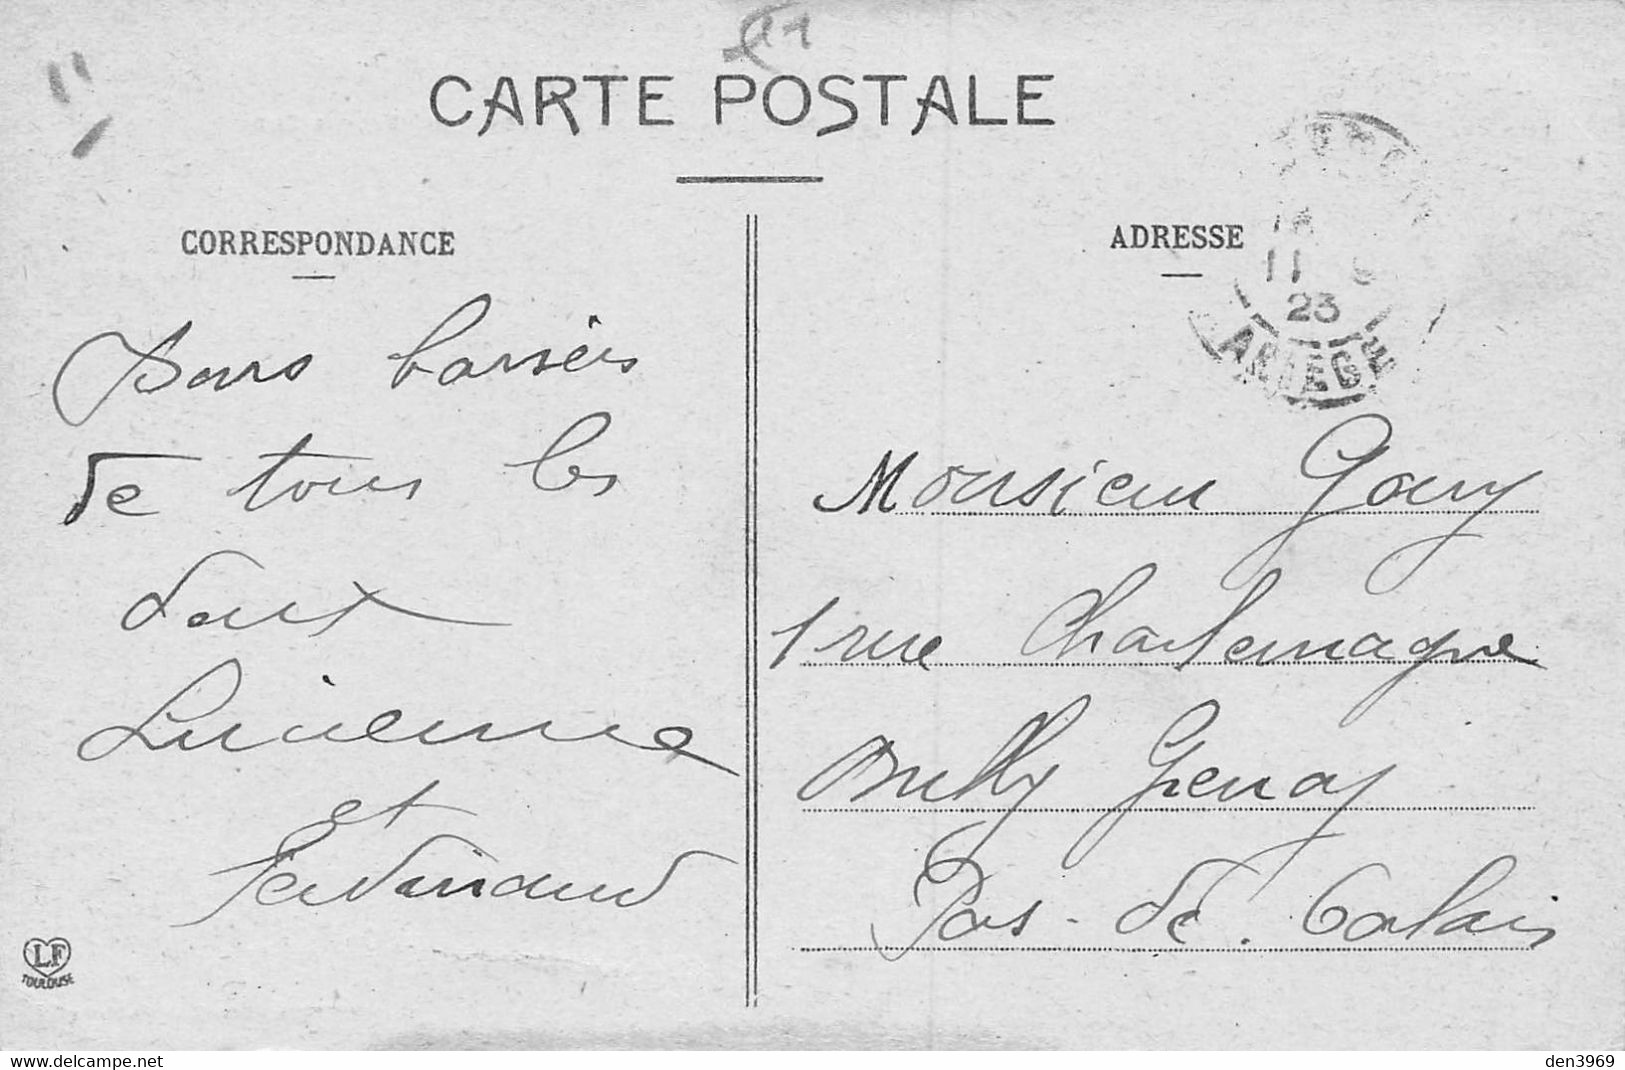 CARTE POSTALE
CORRESPONDANCE
ADRESSE
11
23
ARIEGE
Bons baisers
de tous les
deux
Lucienne
et
Ferdinand
Monsieur Gary
1 rue Charlemagne
Bully Grenay
Pas-de-Calais
LF
TOULOUSE
Delcampe.net
den3969